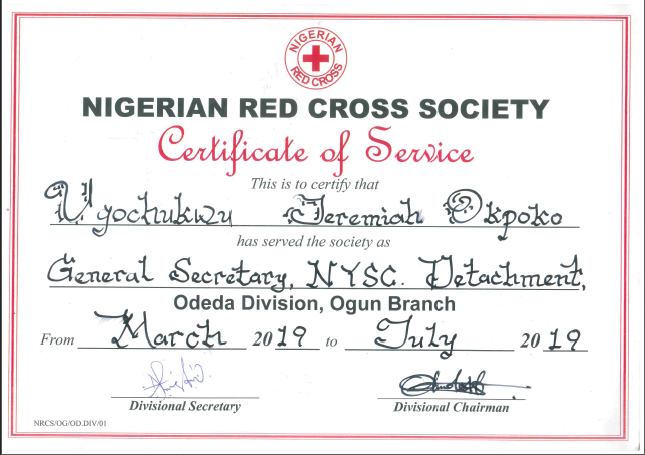 NIGERIAN
RED CROSS
NIGERIAN RED CROSS SOCIETY
Certificate of Service
This is to certify that
Ugochukwu Jeremiah Okpoko
has served the society as
General Secretary, NYSC. Detachment,
Odeda Division, Ogun Branch
From March 2019 to July 2019
Divisional Secretary Divisional Chairman
NRCS/OG/OD.DIV/01